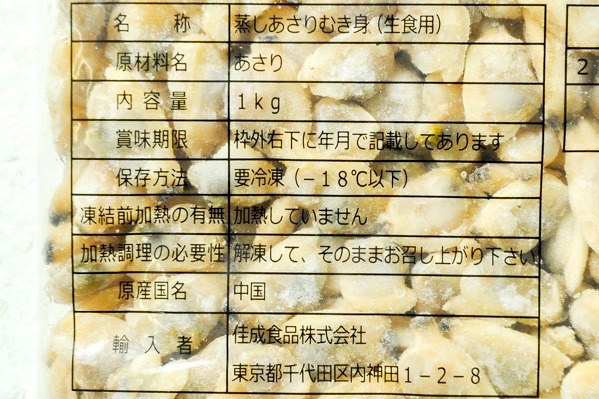 名 称 蒸しあさりむき身（生食用）
原材料名 あさり
内容量 1kg
賞味期限 枠外右下に年月で記載してあります
保存方法 要冷凍（－18℃以下）
凍結前加熱の有無 加熱していません
加熱調理の必要性 解凍して、そのままお召し上がり下さい
原産国名 中国
輸入者 佳成食品株式会社
東京都千代田区内神田1－2－8
2